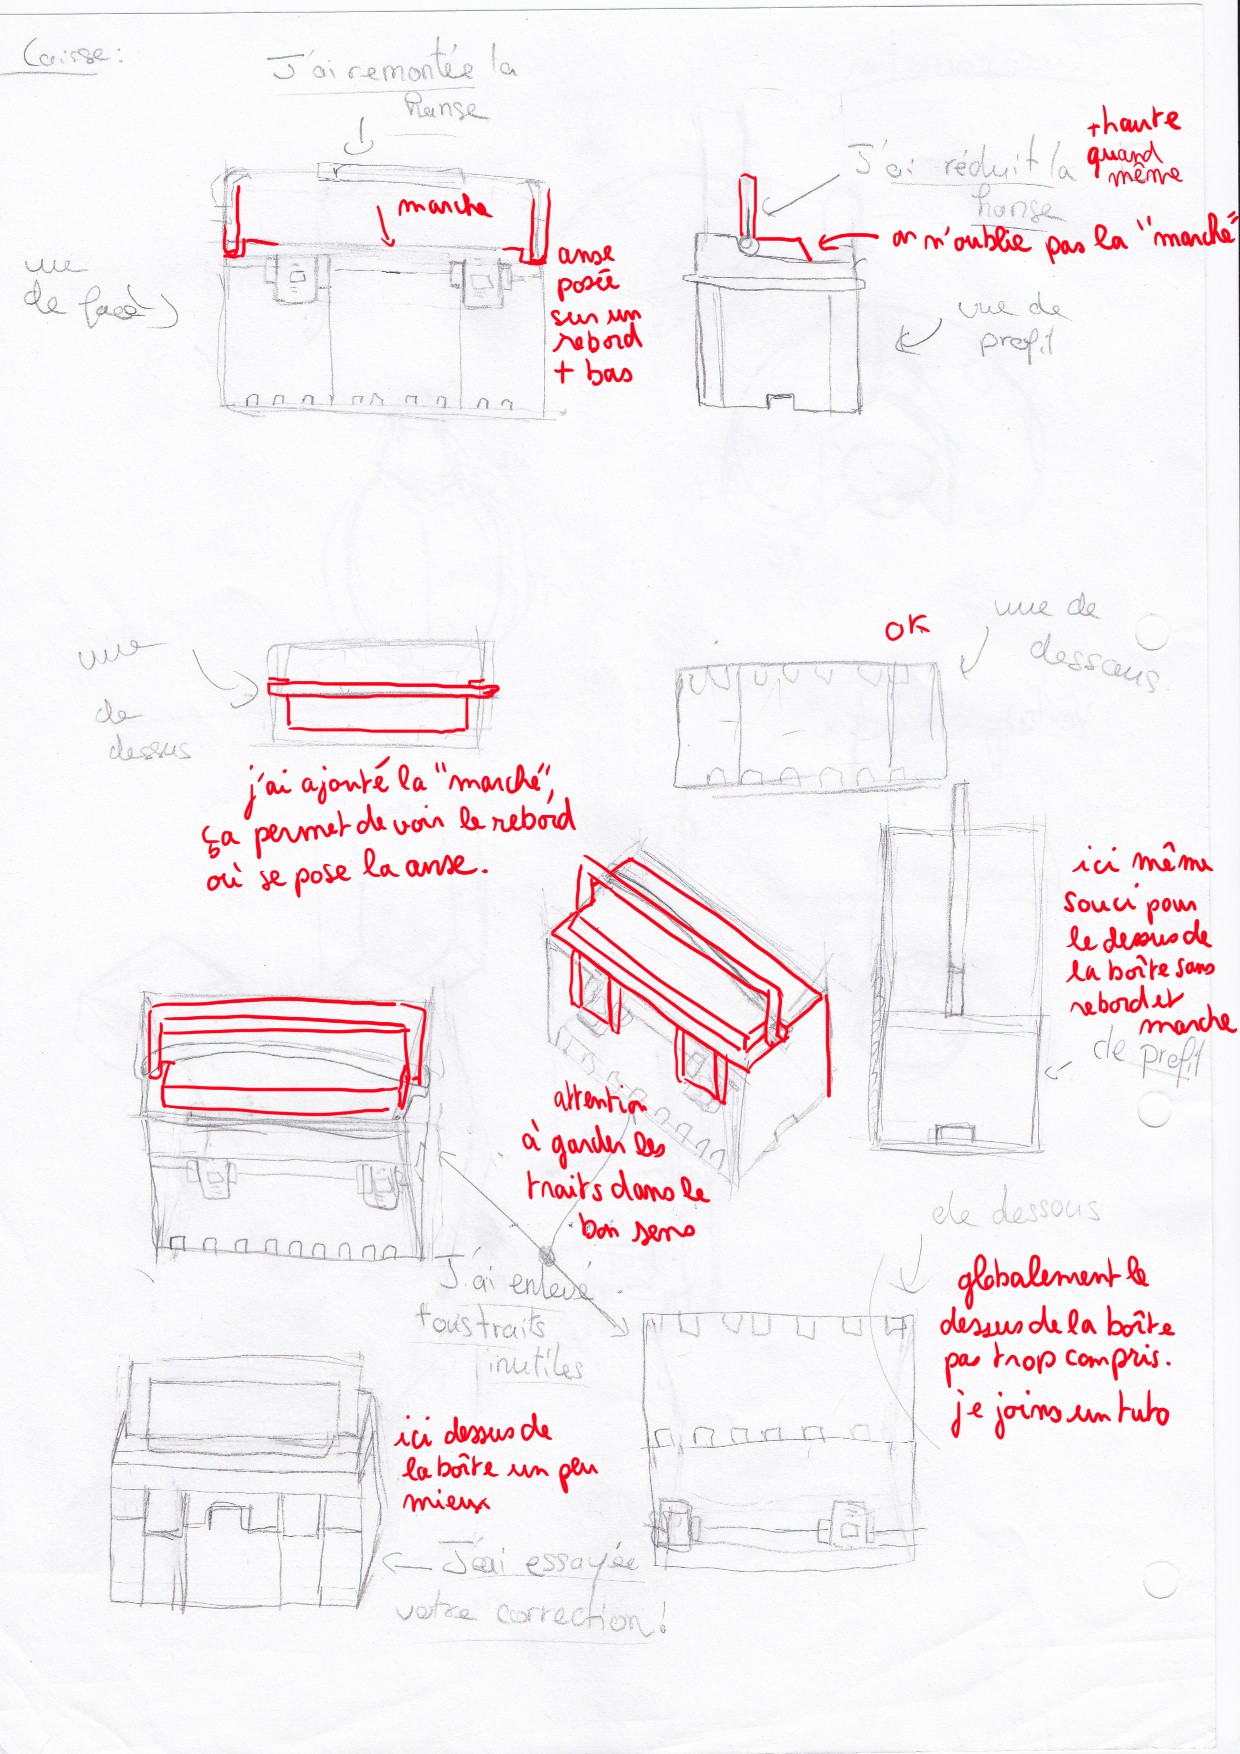 Caisse :
J'ai remontée la
hanse
+ haute
quand
même
J'ai réduit la
hanse
marche
on n'oublie pas la "marche"
anse
posée
sur un
rebord
+ bas
vue
de face
vue de
profil
OK
vue de
dessous
vue
de
dessus
j'ai ajouté la "marche",
ça permet de voir le rebord
où se pose la anse.
ici même
souci pour
le dessus de
la boîte sans
rebord et
marche
de profil
attention
à garder les
traits dans le
bon sens
de dessous
J'ai enlevé
tous traits
inutiles
globalement le
dessus de la boîte
pas trop compris.
je joins un tuto
ici dessus de
la boîte un peu
mieux
J'ai essayée
votre correction !